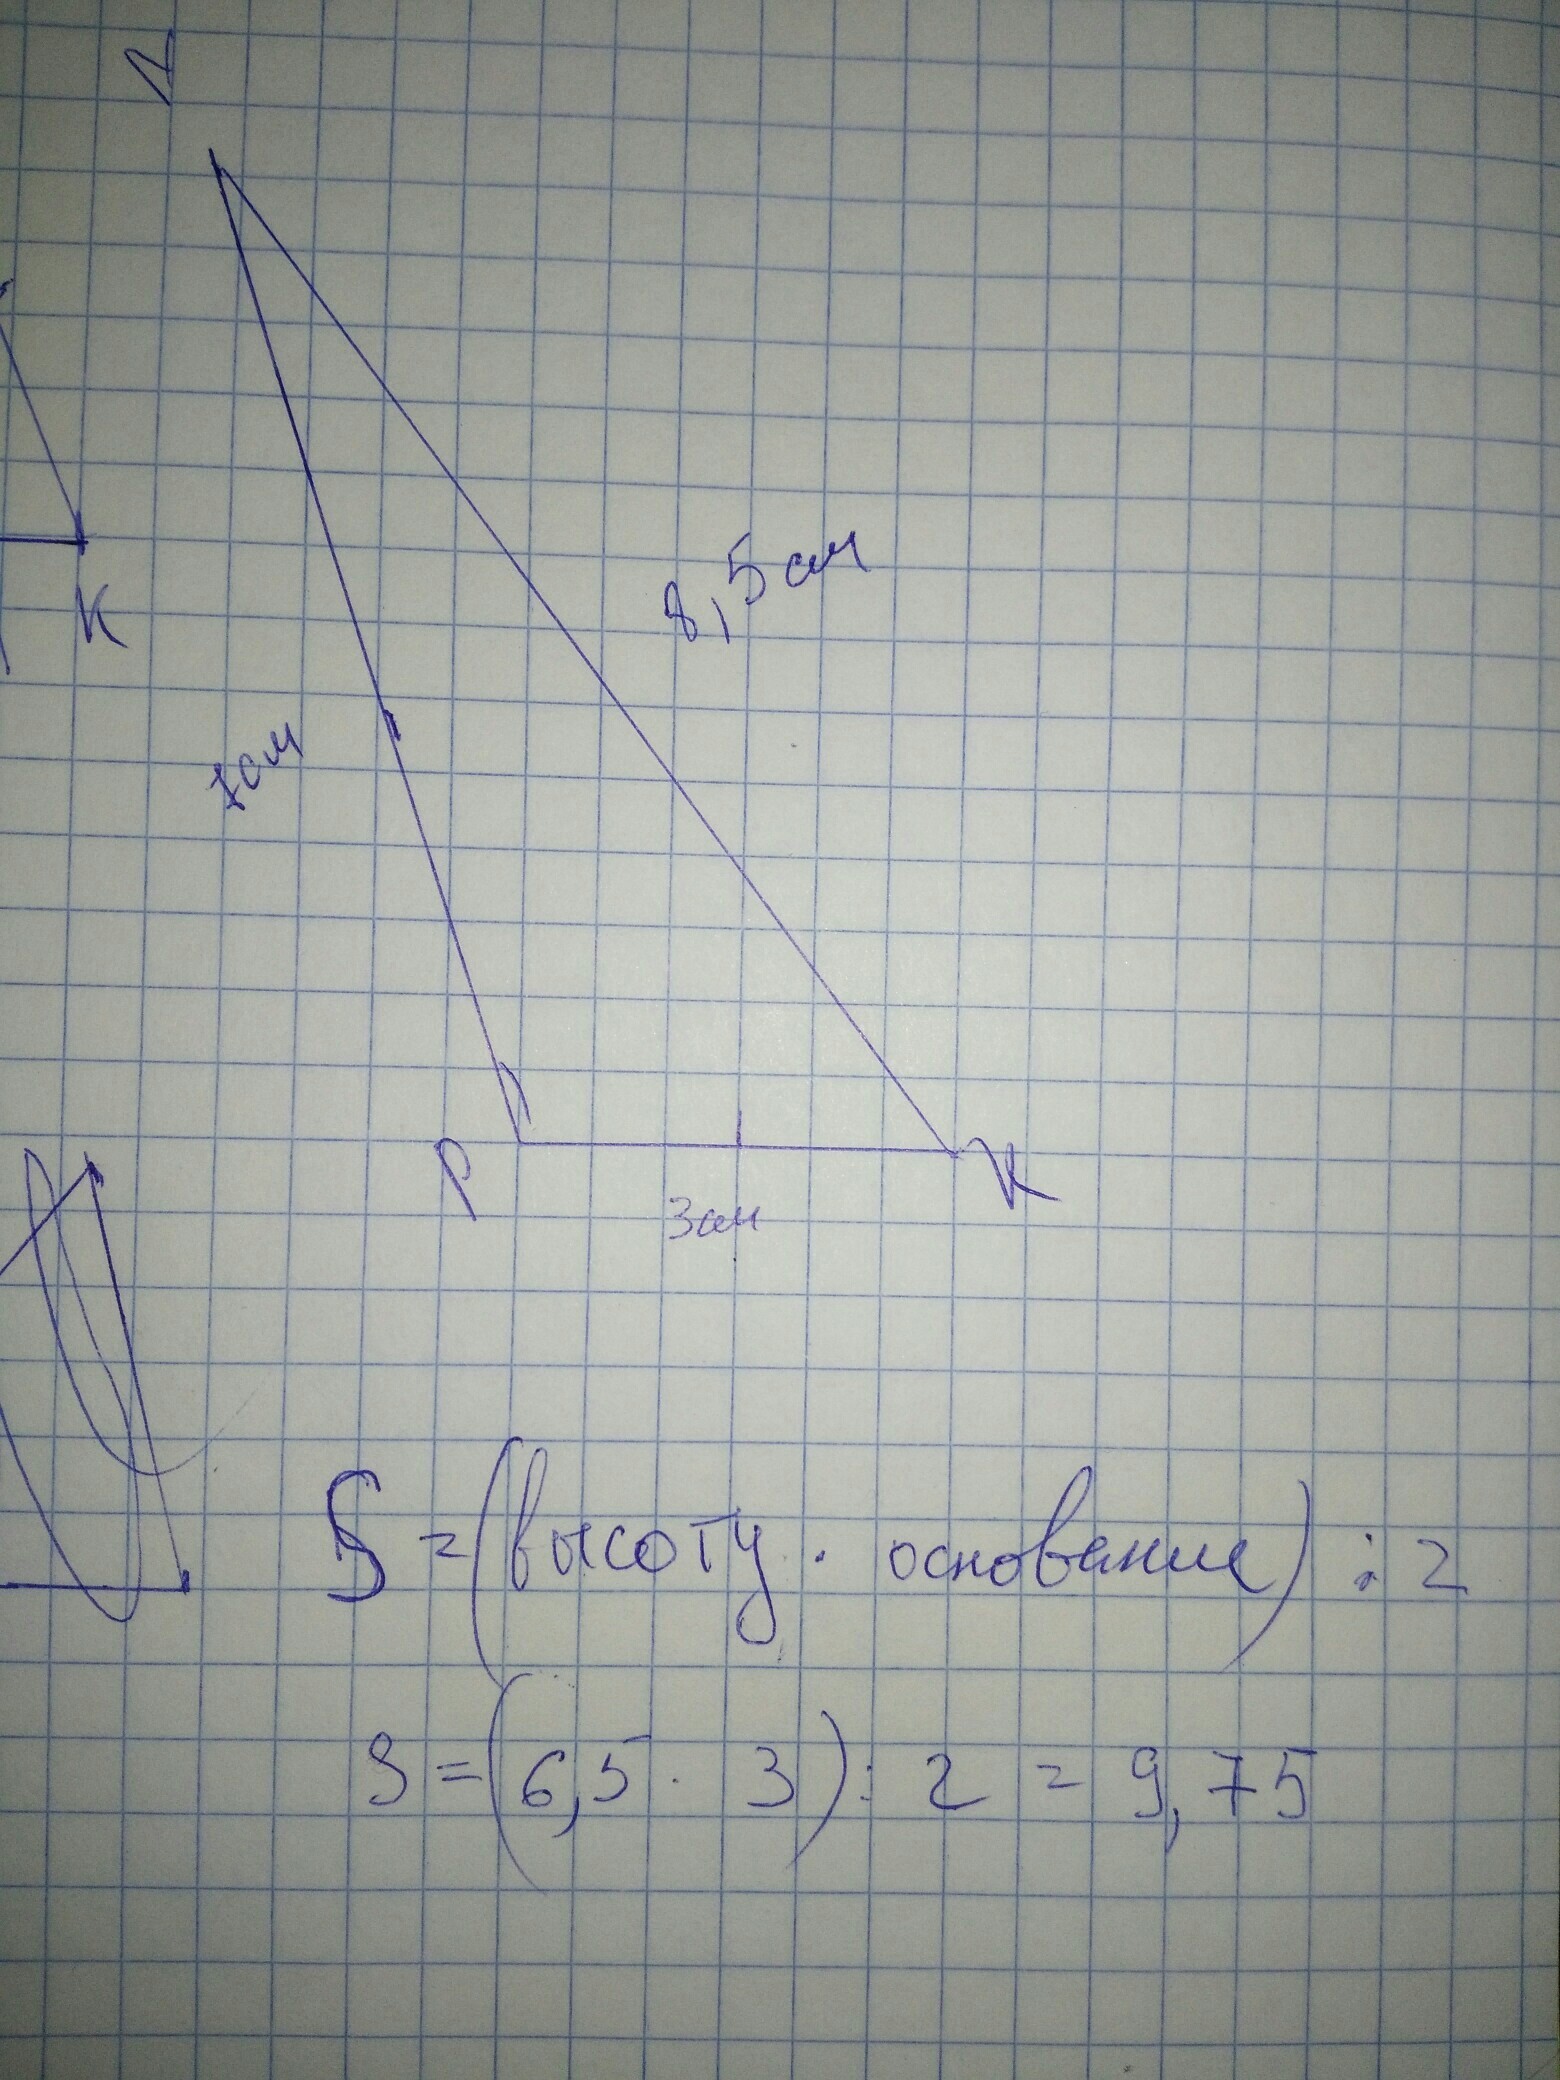 N
8,5 см
К
7см
Р
К
3см
S = (высоту · основание) : 2
S = (6,5 · 3) : 2 = 9,75